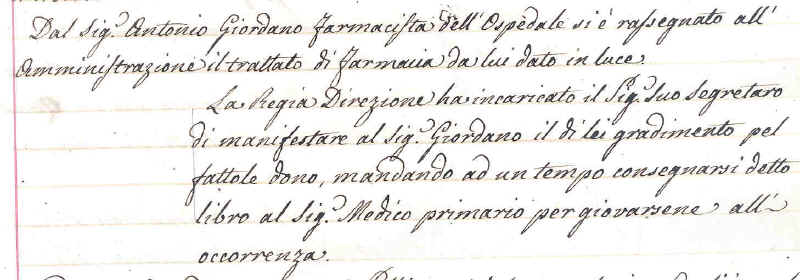 Dal Sig.r Antonio Giordano Farmacista dell' Ospedale si è rassegnato all'
Amministrazione il trattato di Farmacia da lui dato in luce.
La Regia Direzione ha incaricato il Sig.r Suo Segretaro
di manifestare al Sig.r Giordano il di lei gradimento pel
fattole dono, mandando ad un tempo consegnarsi detto
libro al Sig.r Medico primario per giovarsene all'
occorrenza.